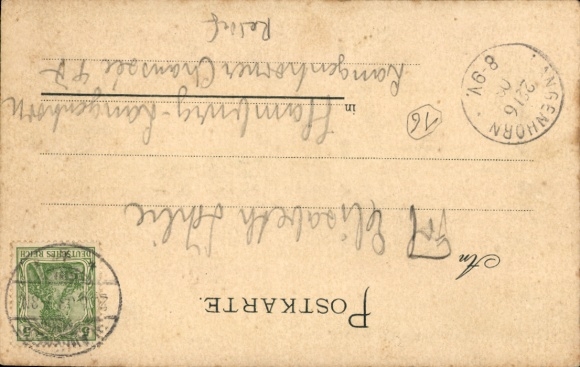 POSTKARTE.
An
Frl Elisabeth
in Hamburg-Langenhorn
Langenhorner Chaussee
Relief
16
LANGENHORN
8-9V.
DEUTSCHES REICH
5 5